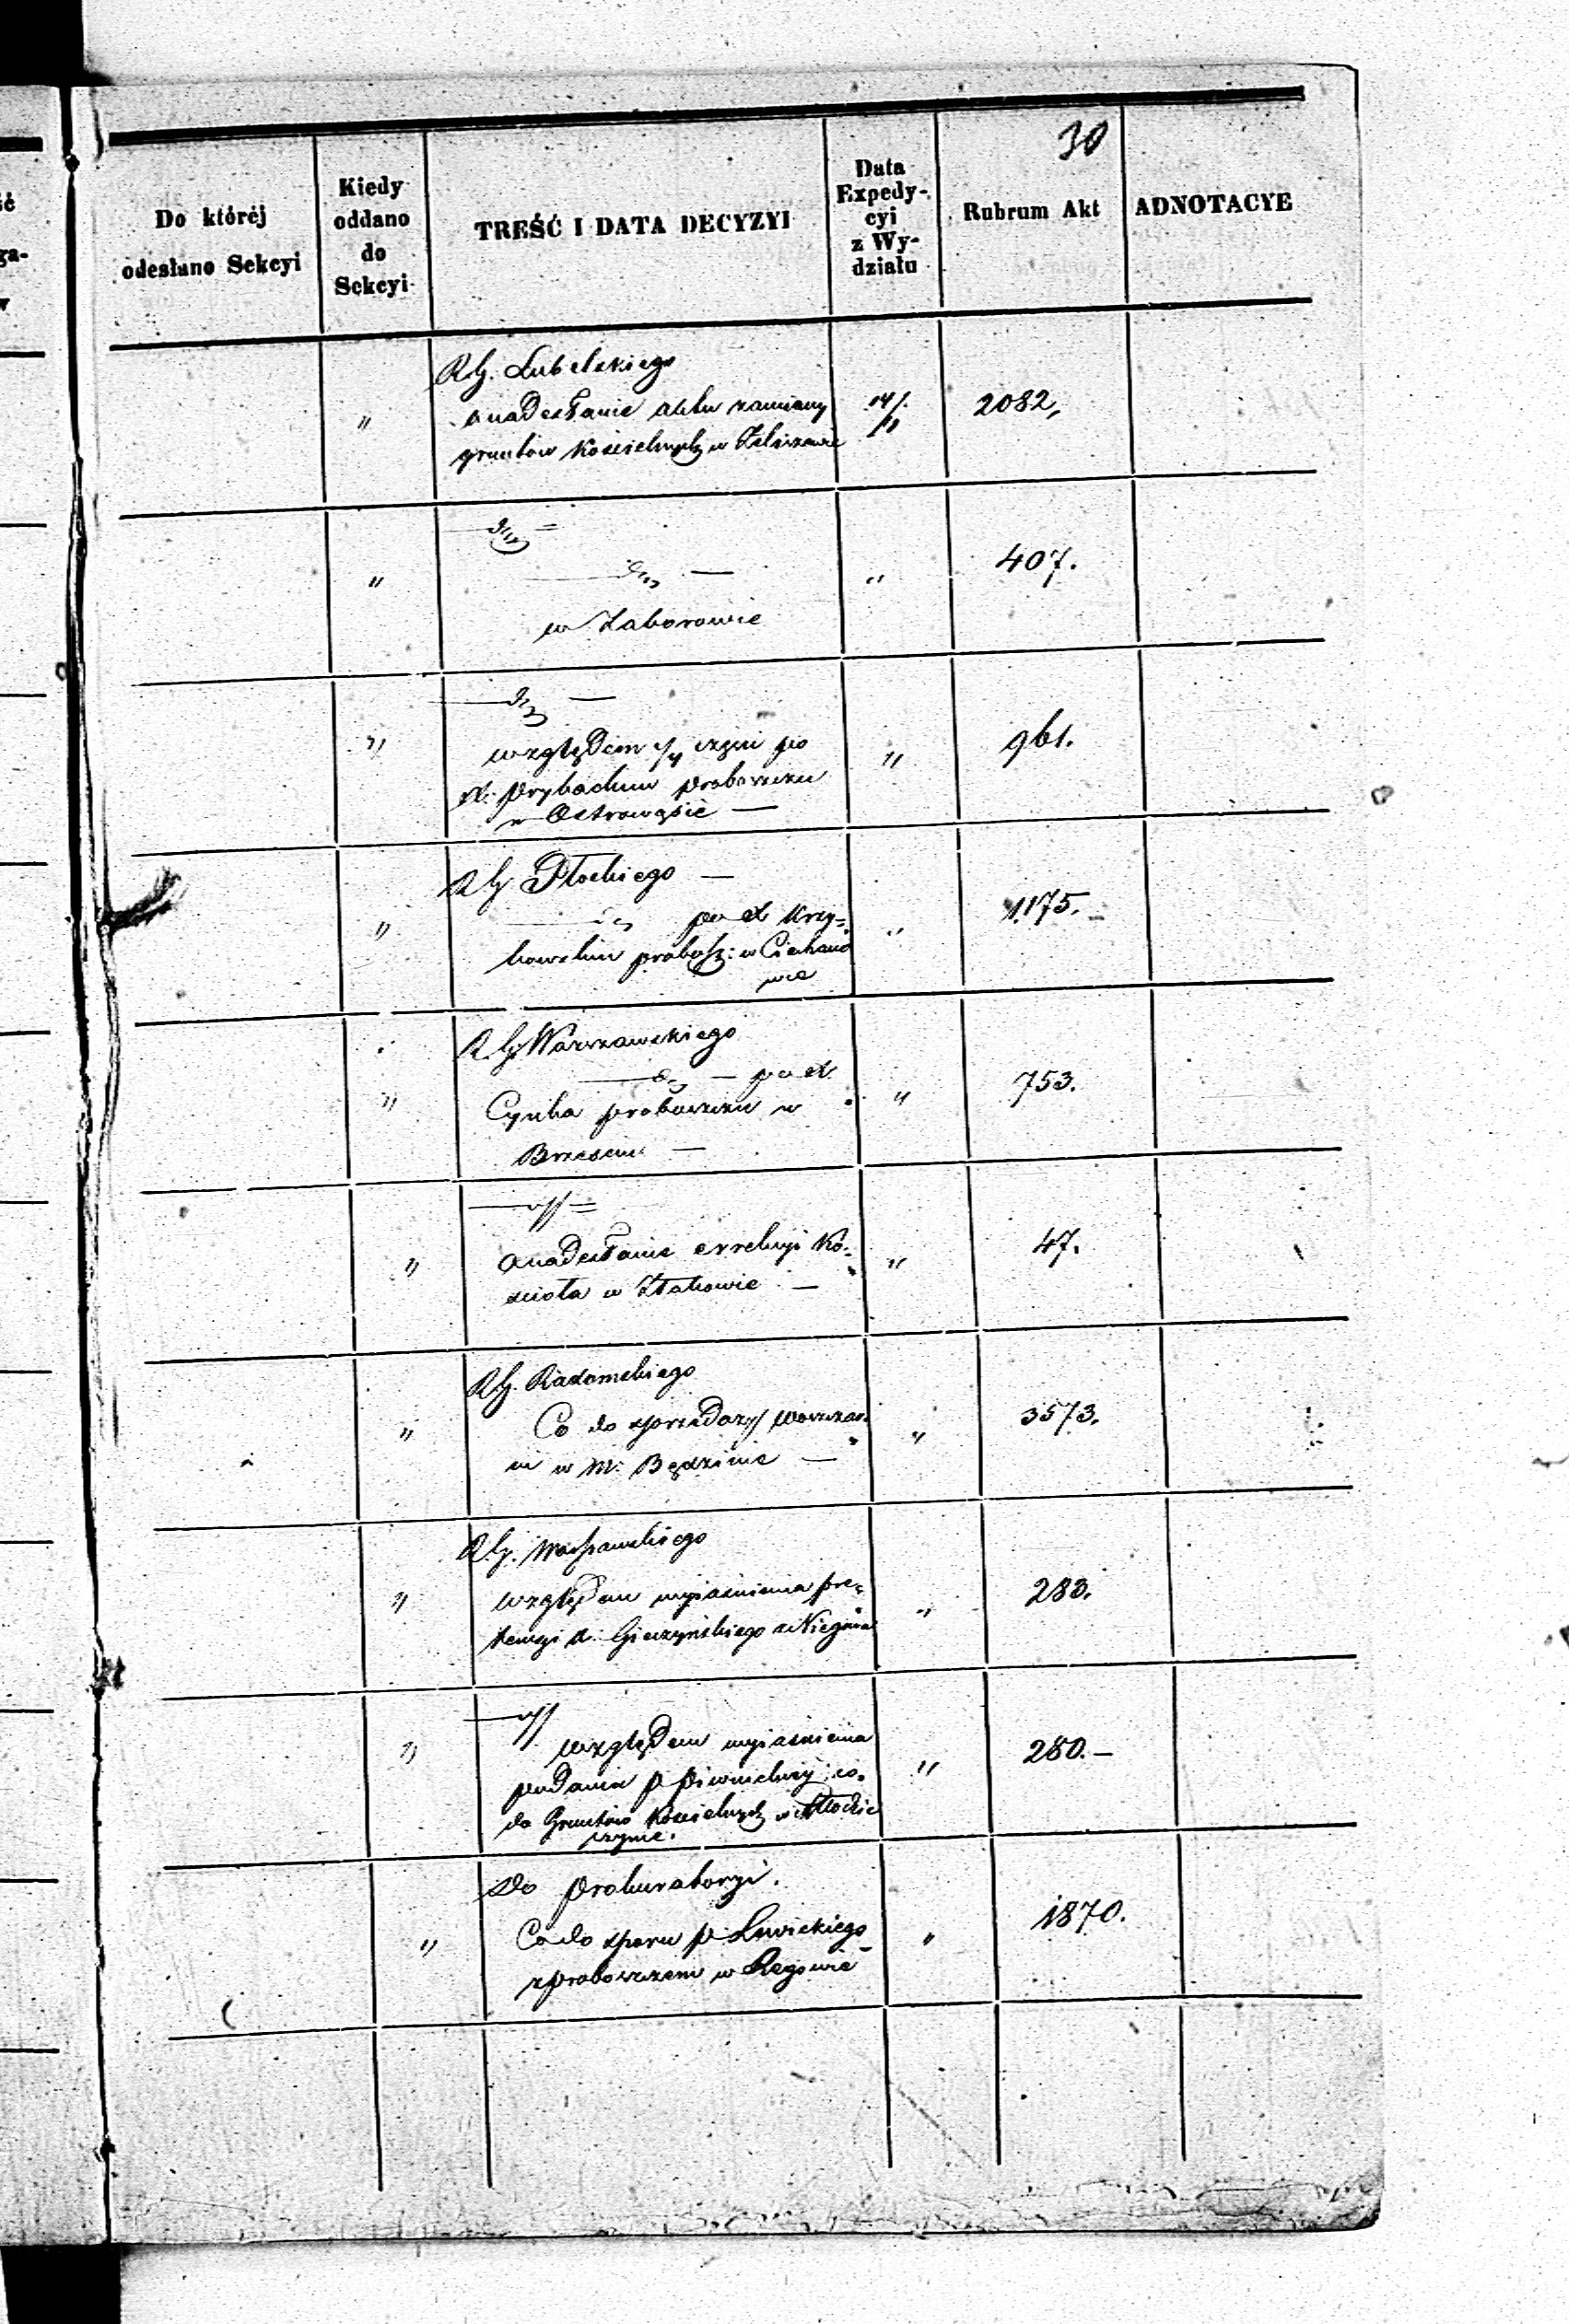 30
Do któréj
odesłano Sekcyi
Kiedy
oddano
do
Sekcyi
TREŚĆ I DATA DECYZYI
Data
Expedy-
cyi
z Wy-
działu
Rubrum Akt
ADNOTACYE
R. G. Lubelskiego
o nadesłanie aktu zamiany
gruntów kościelnych w
"
14/
2082,
"
w Zaborowie
"
407.
"
względem 1/4 części po
X. proboszczu
w Ostrowąsie —
"
961.
R G Płockiego —
"
po X Krzy-
kowskim probosz: w Ciechano
wie
"
1175.—
R. G. Warszawskiego
"
— po X.
Cynka proboszczu w
"
753.
"
o nadesłanie erekcyi Ko-
ścioła w Złakowie —
"
47.
R G. Radomskiego
"
Co do sprzedaży
ni w M: Będzinie —
"
3573.
R. G. Warszawskiego
"
względem wyjaśnienia pre-
tensyi X. Gieczyńskiego
"
283.
"
względem wyjaśnienia
podania P co
do Gruntów Kościelnych
"
280.—
Do Prokuratoryi.
"
Co do sporu P. Lewickiego
z proboszczem w Regowie
"
1870.